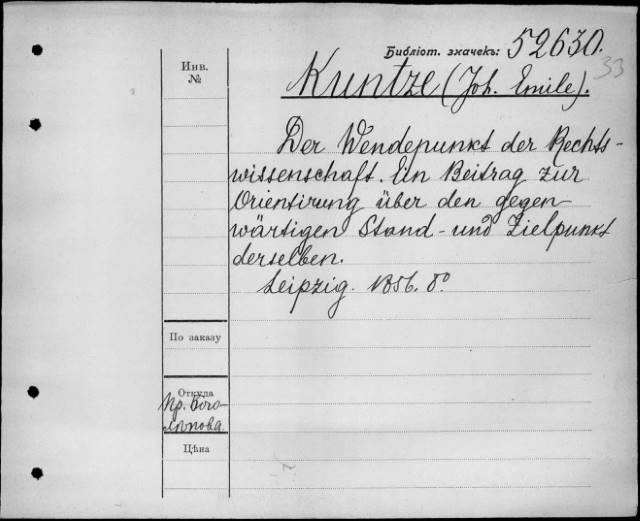 Библіот. значекъ: 52630.
33
Инв.
№
Kuntze (Joh. Emile).
Der Wendepunkt der Rechts-
wissenschaft. Ein Beitrag zur
Orientirung über den gegen
wärtigen Stand - und Zielpunkt
derselben.
Leipzig. 1856. 8°
По заказу
Откуда
Пр. Бого-
лѣпова
Цѣна